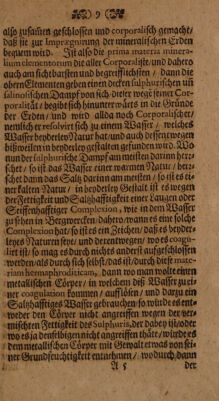 9
also zusam̃en geschlossen und corporalisch gemacht/
daß sie zur Imprægnirung der mineralischen Erden
bequem wird. Ist also die prima materia minera-
lium elementorum die aller Corporaliste/ und dahero
auch am sichtbarsten und begreifflichsten / dann die
obern Elementen geben einen dero sulphurischen uñ
salinolischen Dampf von sich/ dieser wegē seiner Cor-
poralität / begibt sich hinunter wärts in die Gründe
der Erden / und wird allda noch Corporalischer/
nemlich er resolvirt sich zu einem Wasser / welches
Wasser beyderley Natur hat/ und auch dessentwegen
bißweilen in beyderley gestalten gefunden wird. Wo
nun der sulphurische Dampf am meisten darinn herr-
schet / so ist das Wasser einer warmen Natur / herr-
schet dann das Saltz darinn am meisten / so ist es ei-
ner kalten Natur / in beyderley Gestalt ist es wegen
der Fettigkeit und Saltzhafftigkeit einer Laugen oder
Seiffenhafftiger Complexion, wie in dem Wasser
zusehen in Bergwercken. dahero wann es eine solche
Complexion hat / so ist es ein Zeichen / daß es beyder-
leyes Naturen sey / und derentwegen / wo es coagu-
lirt ist / so mag es durch nichts anderst aufgeschlossen
werden/ als durch sich selbst/ das ist durch diese mate-
riam hermaphroditicam, dann wo man wollt einen
metallischen Cörper / in welchem deß Wasser zu ei-
ner coagulation kommen / aufflösen / und darzu ein
Saltzhafftiges Wasser gebrauchen/ so würde es ent-
weder den Cörper nicht angreiffen wegen der ver-
mischten Fettigkeit des Sulphuris, der dabey ist/ oder
wo es ja denselbigen nicht angreiffen thäte/ würde es
dem metallischen Cörper mit Gewalt etwas von sei-
ner Grundfeuchtigkeit entnehmen / wodurch dann
A 5 der